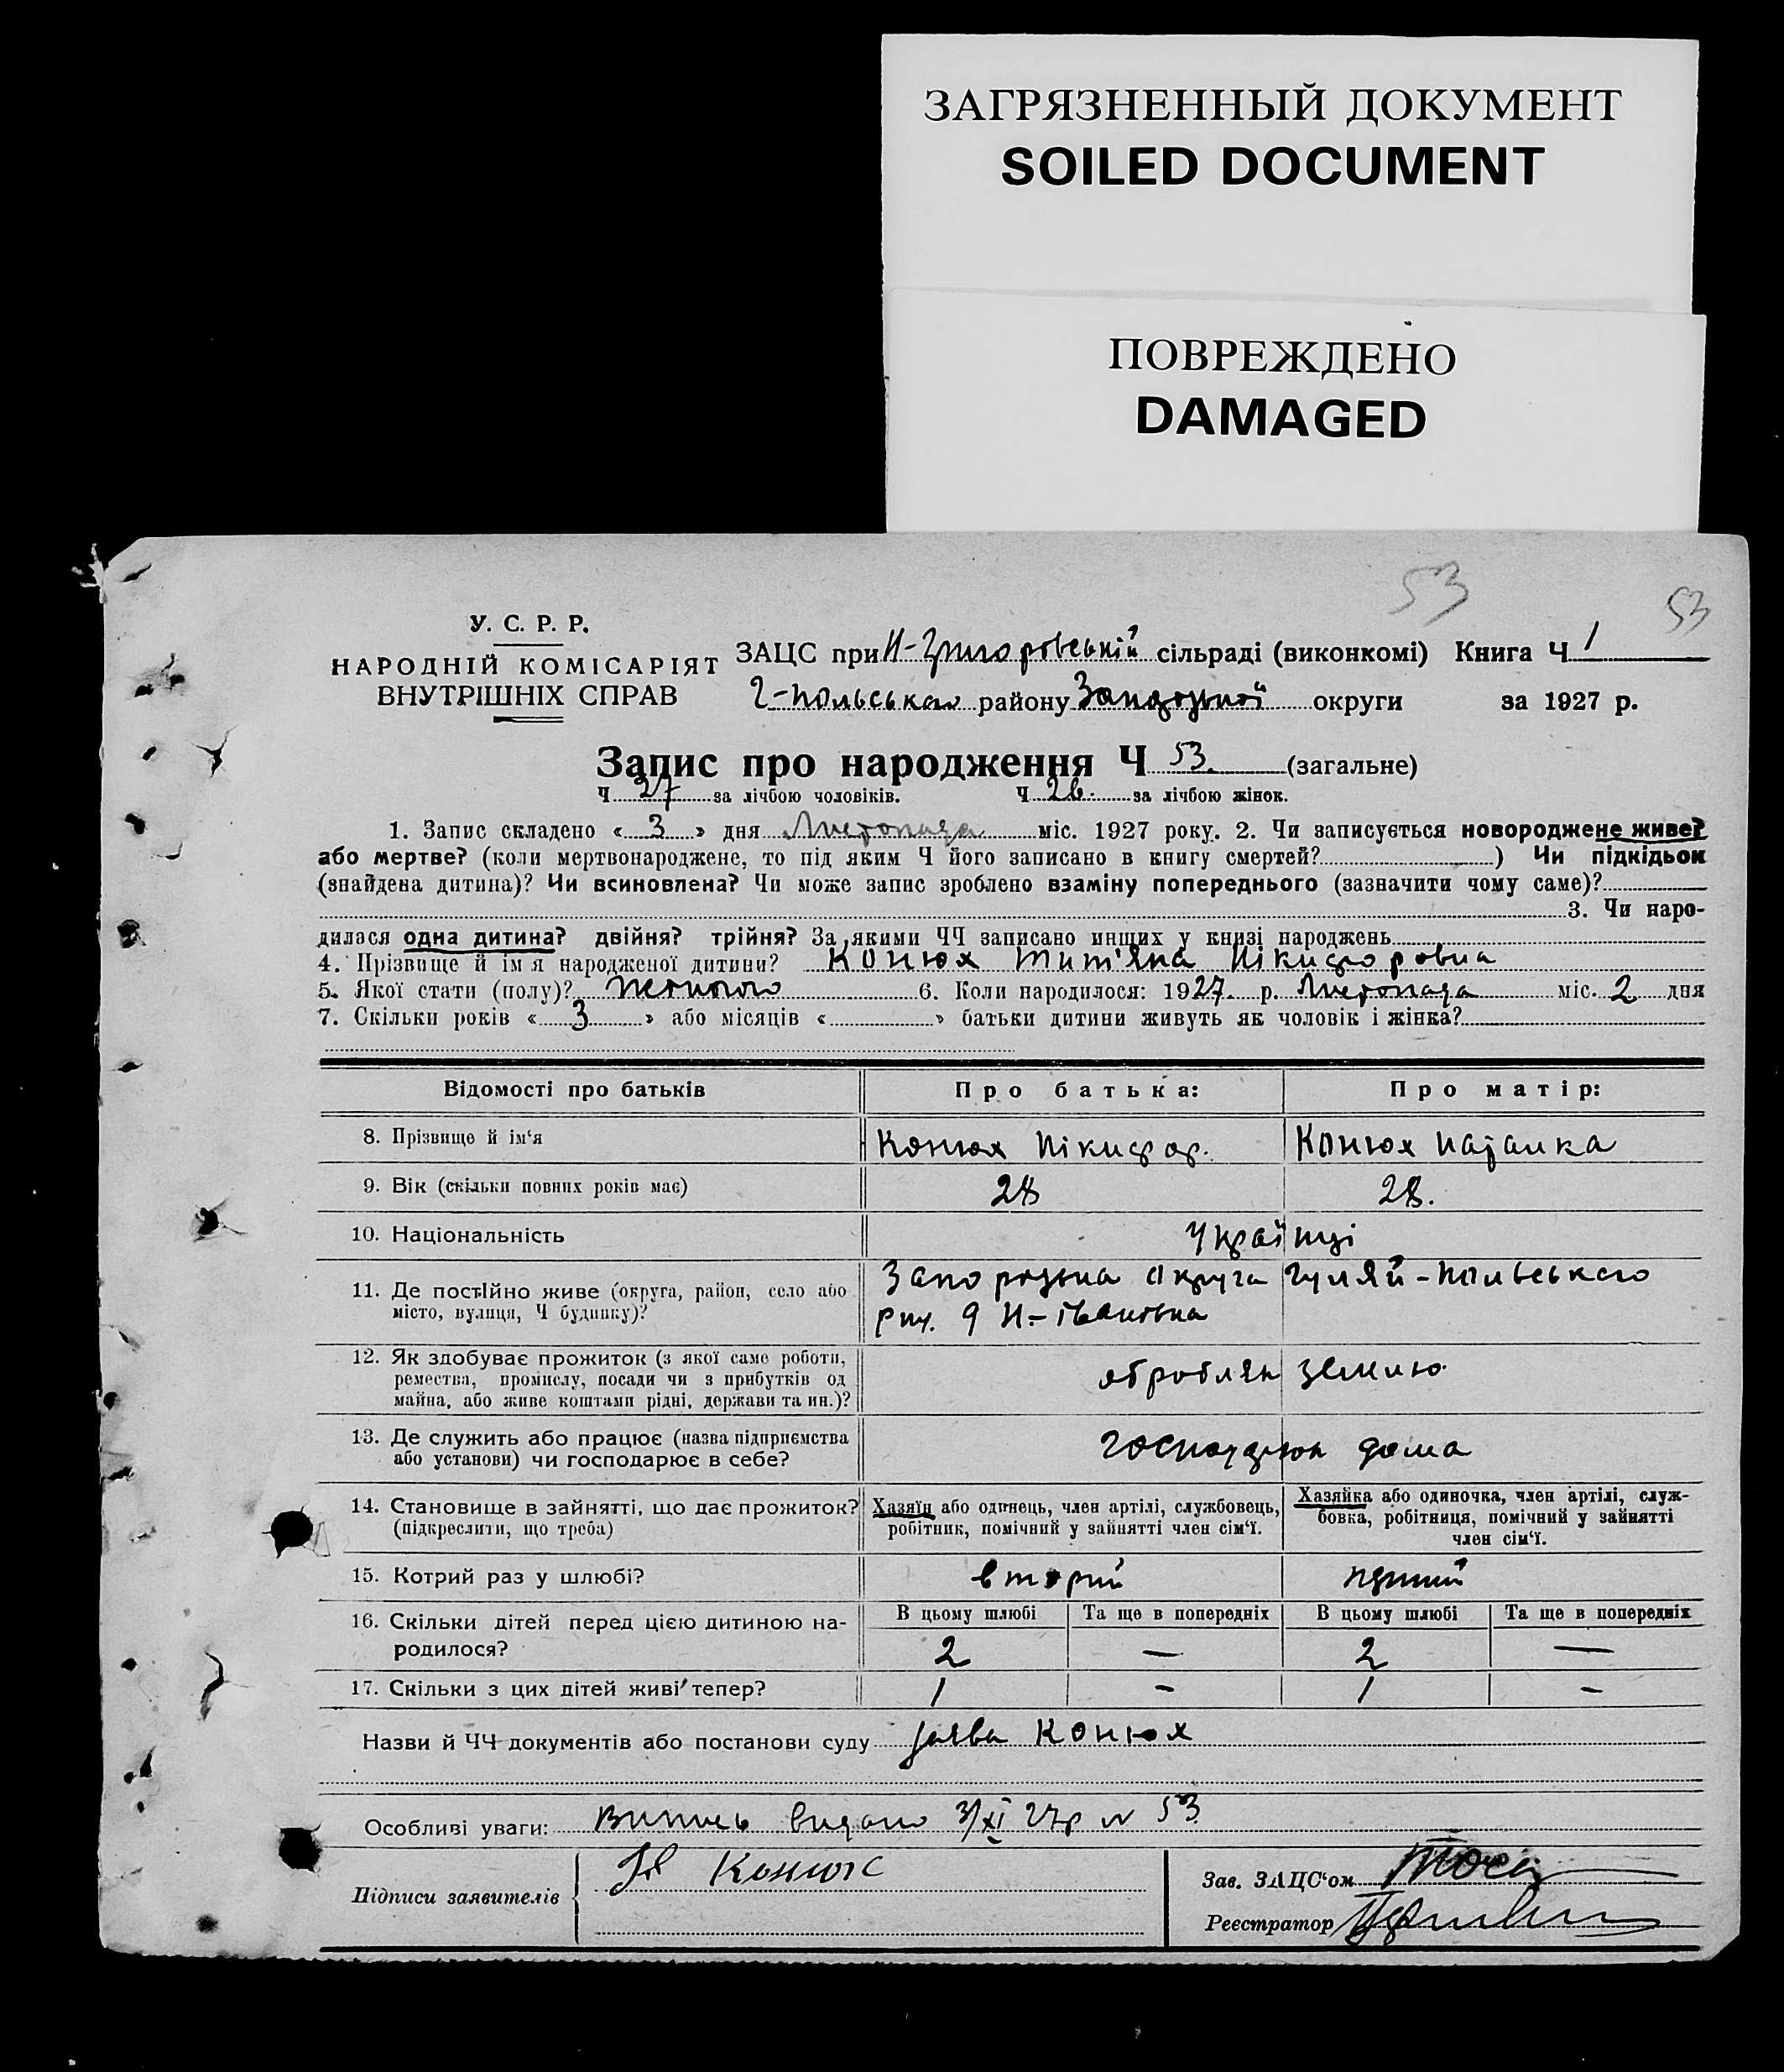 ЗАГРЯЗНЕННЫЙ ДОКУМЕНТ
SOILED DOCUMENT
ПОВРЕЖДЕНО
DAMAGED
53 53
У. С. Р. Р.
НАРОДНІЙ КОМІСАРІЯТ
ВНУТРІШНІХ СПРАВ
ЗАЦС при Н-Григоровській сільраді (виконкомі) Книга Ч 1
Г-Польського району Запорізької округи за 1927 р.
Запис про народження Ч 53. (загальне)
Ч 27 за лічбою чоловіків. Ч 26. за лічбою жінок.
1. Запис складено « 3 » дня Листопада міс. 1927 року. 2. Чи записується новороджене живе?
або мертве? (коли мертвонароджене, то під яким Ч його записано в книгу смертей? ) Чи підкідьок
(знайдена дитина)? Чи всиновлена? Чи може запис зроблено взаміну попереднього (зазначити чому саме)?
3. Чи наро-
дилася одна дитина? двійня? трійня? За якими ЧЧ записано инших у книзі народжень
4. Прізвище й ім'я народженої дитини? Конюх Тит'яна Нікифоровна
5. Якої стати (полу)? Жетного 6. Коли народилося: 1927. р. Листопада міс. 2 дня
7. Скільки років « 3 » або місяців « » батьки дитини живуть як чоловік і жінка?
Відомості про батьків Про батька: Про матір:
8. Прізвище й ім'я Конюх Нікифор. Конюх Наталка
9. Вік (скільки повних років має) 28 28.
10. Національність Українці
11. Де постійно живе (округа, район, село або Запорізька округа Гуляй-Польського
місто, вулиця, Ч будинку)? Н.-Іванівка
12. Як здобуває прожиток (з якої саме роботи, обробляє землю
ремества, промислу, посади чи з прибутків од
майна, або живе коштами рідні, держави та ин.)?
13. Де служить або працює (назва підприємства господарює дома
або установи) чи господарює в себе?
14. Становище в зайнятті, що дає прожиток? Хазяїн або одинець, член артілі, службовець, Хазяйка або одиночка, член артілі, служ-
(підкреслити, що треба) робітник, помічний у зайнятті член сім'ї. бовка, робітниця, помічний у зайнятті
член сім'ї.
15. Котрий раз у шлюбі? вторий перший
16. Скільки дітей перед цією дитиною на- В цьому шлюбі Та ще в попередніх В цьому шлюбі Та ще в попередніх
родилося? 2 — 2 —
17. Скільки з цих дітей живі тепер? 1 - 1 -
Назви й ЧЧ документів або постанови суду заява Конюх
Особливі уваги: Випись видано 3/XI 27р N 53
Підписи заявителів Конюх
Зав. ЗАЦС'ом
Реєстратор